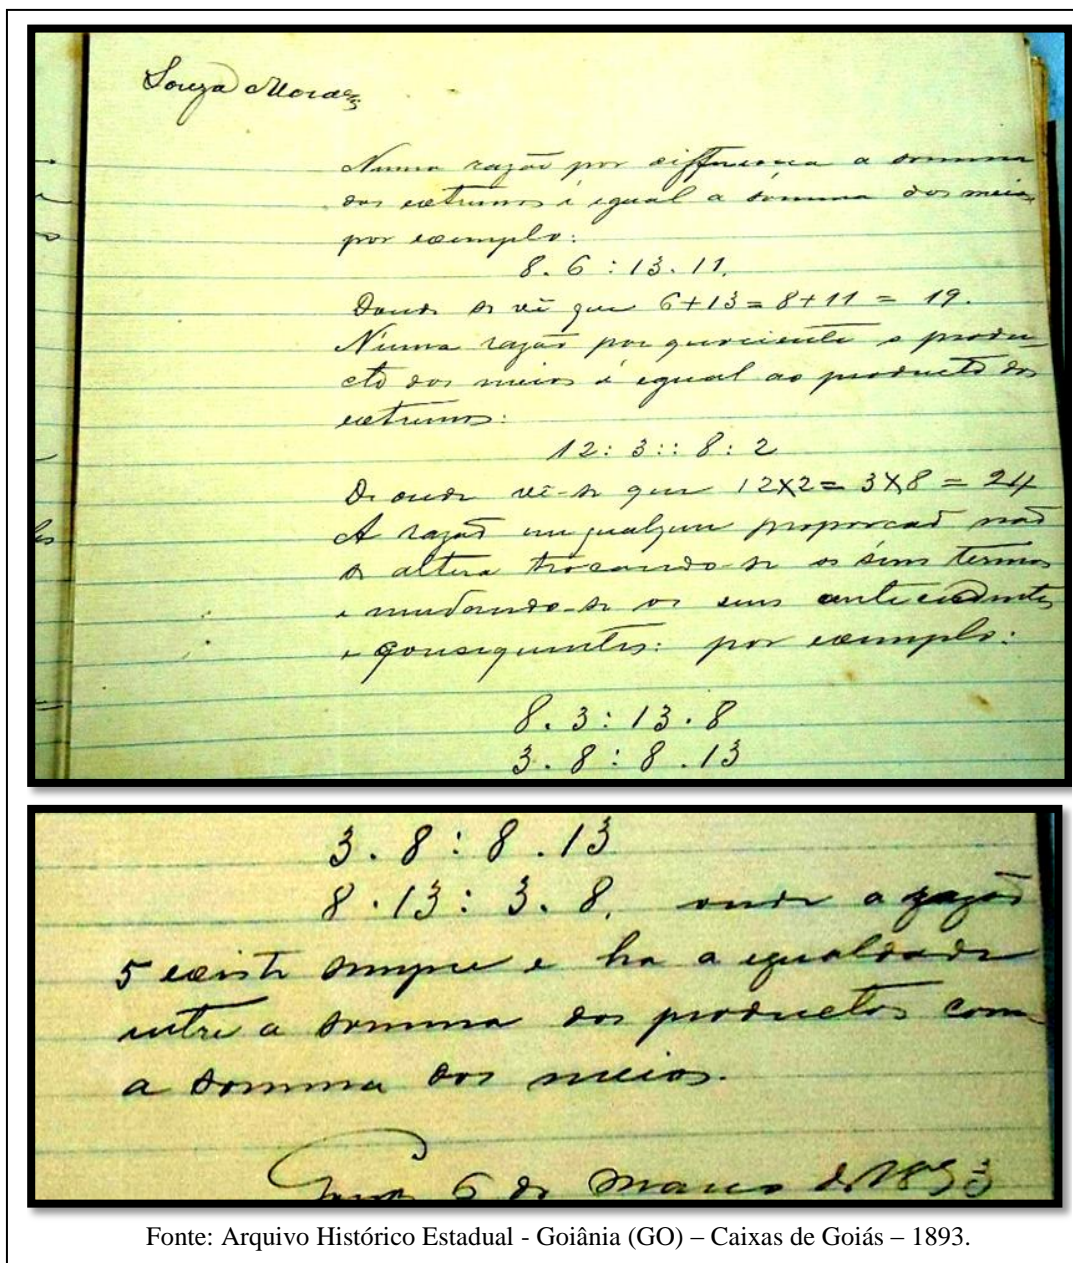 Souza Moraes
Numa razão por differença a somma
dos extremos é egual a somma dos meios
por exemplo:
8. 6 : 13. 11.
Donde se vê que 6+13=8+11 = 19.
Numa razão por quociente o produ-
cto dos meios é egual ao producto dos
extremos:
12: 3:: 8: 2
De onde vê-se que 12X2= 3X8 = 24
A razão em qualquer proporcão não
se altera trocando-se os seus termos
e mudando-se os seus antecedentes
e consequentes: por exemplo:
8. 3: 13. 8
3. 8: 8. 13
3. 8: 8. 13
8. 13: 3. 8, onde a razão
5 existe sempre e ha a egualdade
entre a somma dos productos com
a somma dos meios.
6 de Março de 1893
Fonte: Arquivo Histórico Estadual - Goiânia (GO) – Caixas de Goiás – 1893.